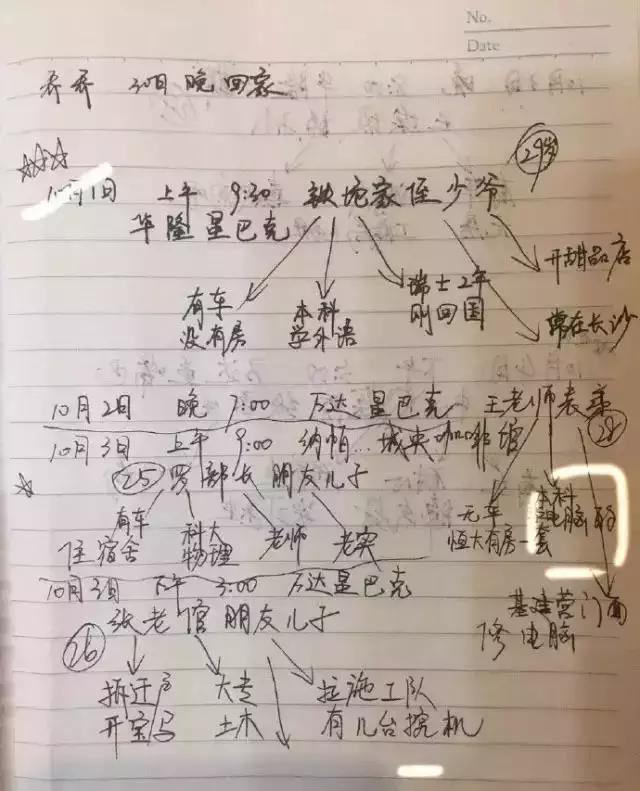 No.
Date
乔乔 30日 晚 回家
10月1日 上午 9:30 铁坨家侄少爷 29岁
华隆星巴克
开甜品店
有车
没有房
本科
学外语
瑞士2年
刚回国
常在长沙
10月2日 晚 7:00 万达星巴克 王老师表弟 28
10月3日 上午 9:00 纳帕...城央咖啡馆
25 罗部长 朋友儿子
有车
住宿舍
科大
物理
老师
老实
无车
恒大有房一套
本科
电脑
10月3日 下午 3:00 万达星巴克
张老倌朋友儿子
26
基建营门面
修电脑
拆迁户
开宝马
大专
土木
拉施工队
有几台挖机